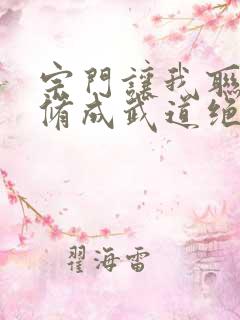 宗門讓我聯
脩成武道絕
翟海雷